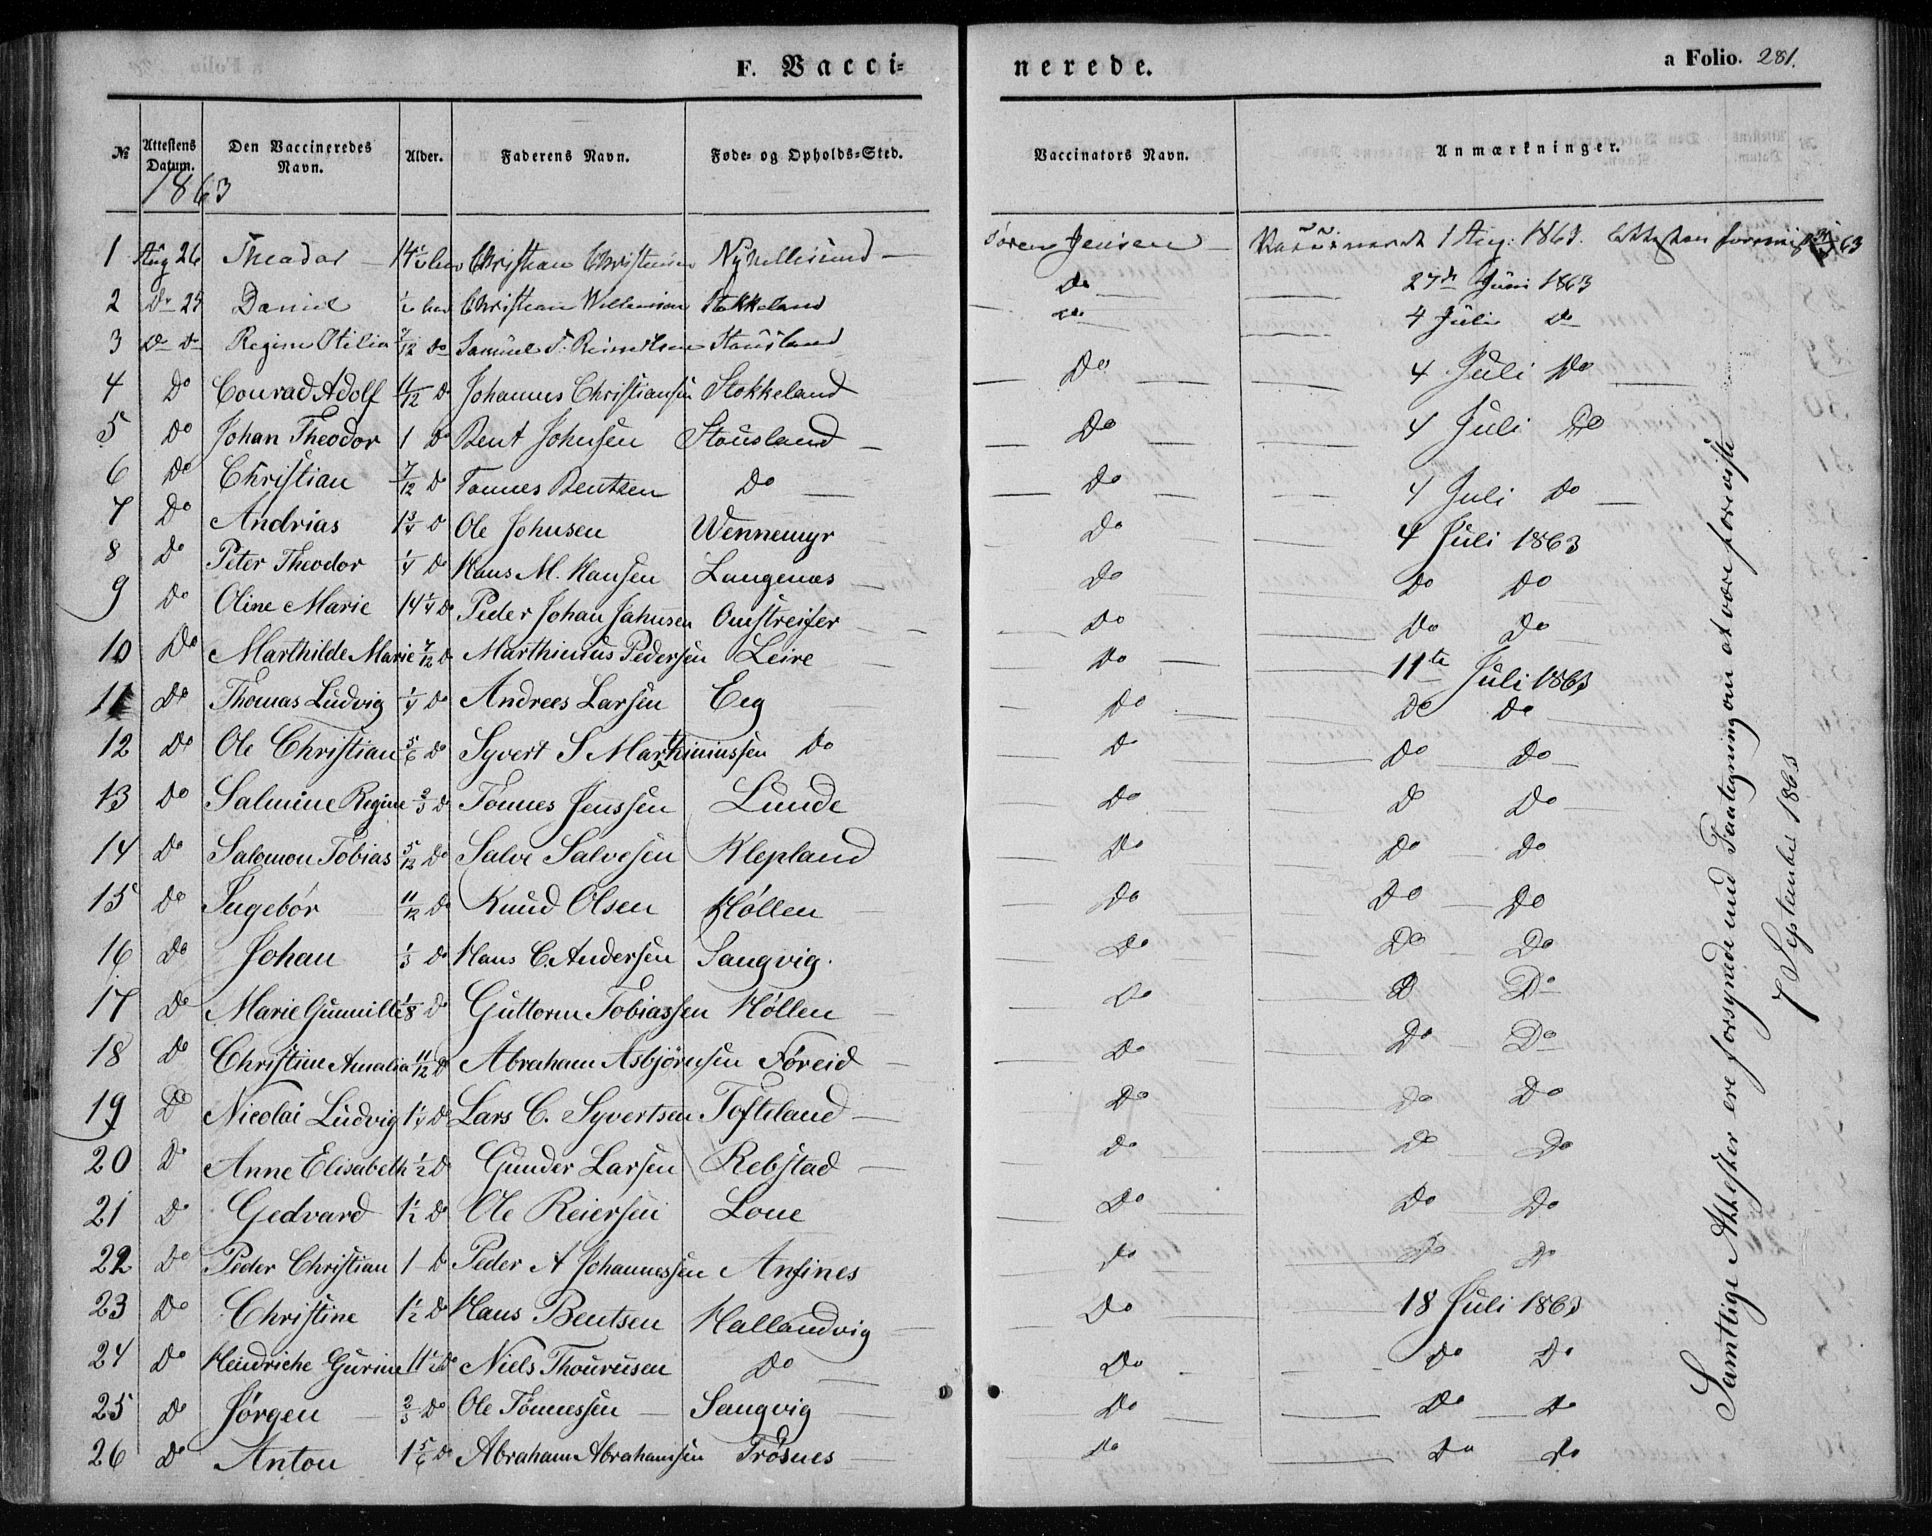 F. Vacci-nerede. a Folio. 281.
№ Attestens Datum. Den Vaccineredes Navn. Alder. Faderens Navn. Føde- og Opholds-Sted. Vaccinators Navn. Anmærkninger.
1863
1 Aug 26 Theodor Christian Christensen Ny Hellesund Søren Jensen Vaccineret 1 Aug. 1863. Attesten forevist 63
2 Do 29 Daniel Christian Willumsen Stokkeland Do 27de Juni 1863
3 Do Do Regine Otilia 7/12 Do Samuel T. Reinertsen Stausland Do 4 Juli Do
4 Do Conrad Adolf 11/12 Do Johannes Christiansen Stokkeland Do 4 Juli Do
5 Do Johan Theodor 1 Do Bent Johnsen Stausland Do 4 Juli Do
6 Do Christian 7/12 Do Tønnes Bentsen Do Do 4 Juli Do
7 Do Andrias 1 3/4 Do Ole Johnsen Wennemyr Do 4 Juli 1863
8 Do Peter Theodor 1/4 Do Hans M. Hansen Langenæs Do Do Do
9 Do Oline Marie 14 1/4 Do Peder Johan Jahnsen Omstreifer Do Do Do
10 Do Marthilde Marie 7/12 Do Marthinius Pedersen Leire Do 11te Juli 1863
11 Do Thomas Ludvig 1/4 Do Andrees Larsen Eeg Do Do Do
12 Do Ole Christian 5/6 Do Syvert S Marthiniussen Do Do Do Do
13 Do Salmine Regine 2/3 Do Tønnes Jenssen Lunde Do Do Do
14 Do Salomon Tobias 5/12 Do Salve Salvesen Klepland Do Do Do
15 Do Ingebør 11/12 Do Knud Olsen Høllen Do Do Do
16 Do Johan 1/3 Do Hans C. Andersen Sangvig. Do Do Do
17 Do Marie Gunnille 1/8 Do Guttorm Tobiassen Høllen Do Do Do
18 Do Christine Amalia 11/12 Do Abraham Asbjørnsen Føreid Do Do Do
19 Do Nicolai Ludvig 1 1/4 Do Lars C. Syvertsen Tofteland Do Do Do
20 Do Anne Elisabeth 1/2 Do Gunder Larsen Rebstad Do Do Do
21 Do Gedvard 1/2 Do Ole Reiersen Lone Do Do Do
22 Do Peder Christian 1 Do Peder A Johannessen Anfines Do Do Do
23 Do Christine 1/2 Do Hans Bentsen Hallandvig Do 18 Juli 1863
24 Do Hendriche Gurine Do Niels Thoursen Do Do Do Do
25 Do Jørgen 2/3 Do Ole Tønnessen Sangvig Do Do Do
26 Do Anton 1 5/6 Do Abraham Abrahamsen Trøsnes Do Do Do
Samtlige Attester ere forsynede med Paategning om at være foreviste
7 September 1863